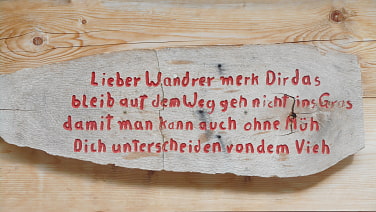 Lieber Wandrer merk Dir das
bleib auf dem Weg geh nicht ins Gras
damit man kann auch ohne Müh
Dich unterscheiden von dem Vieh